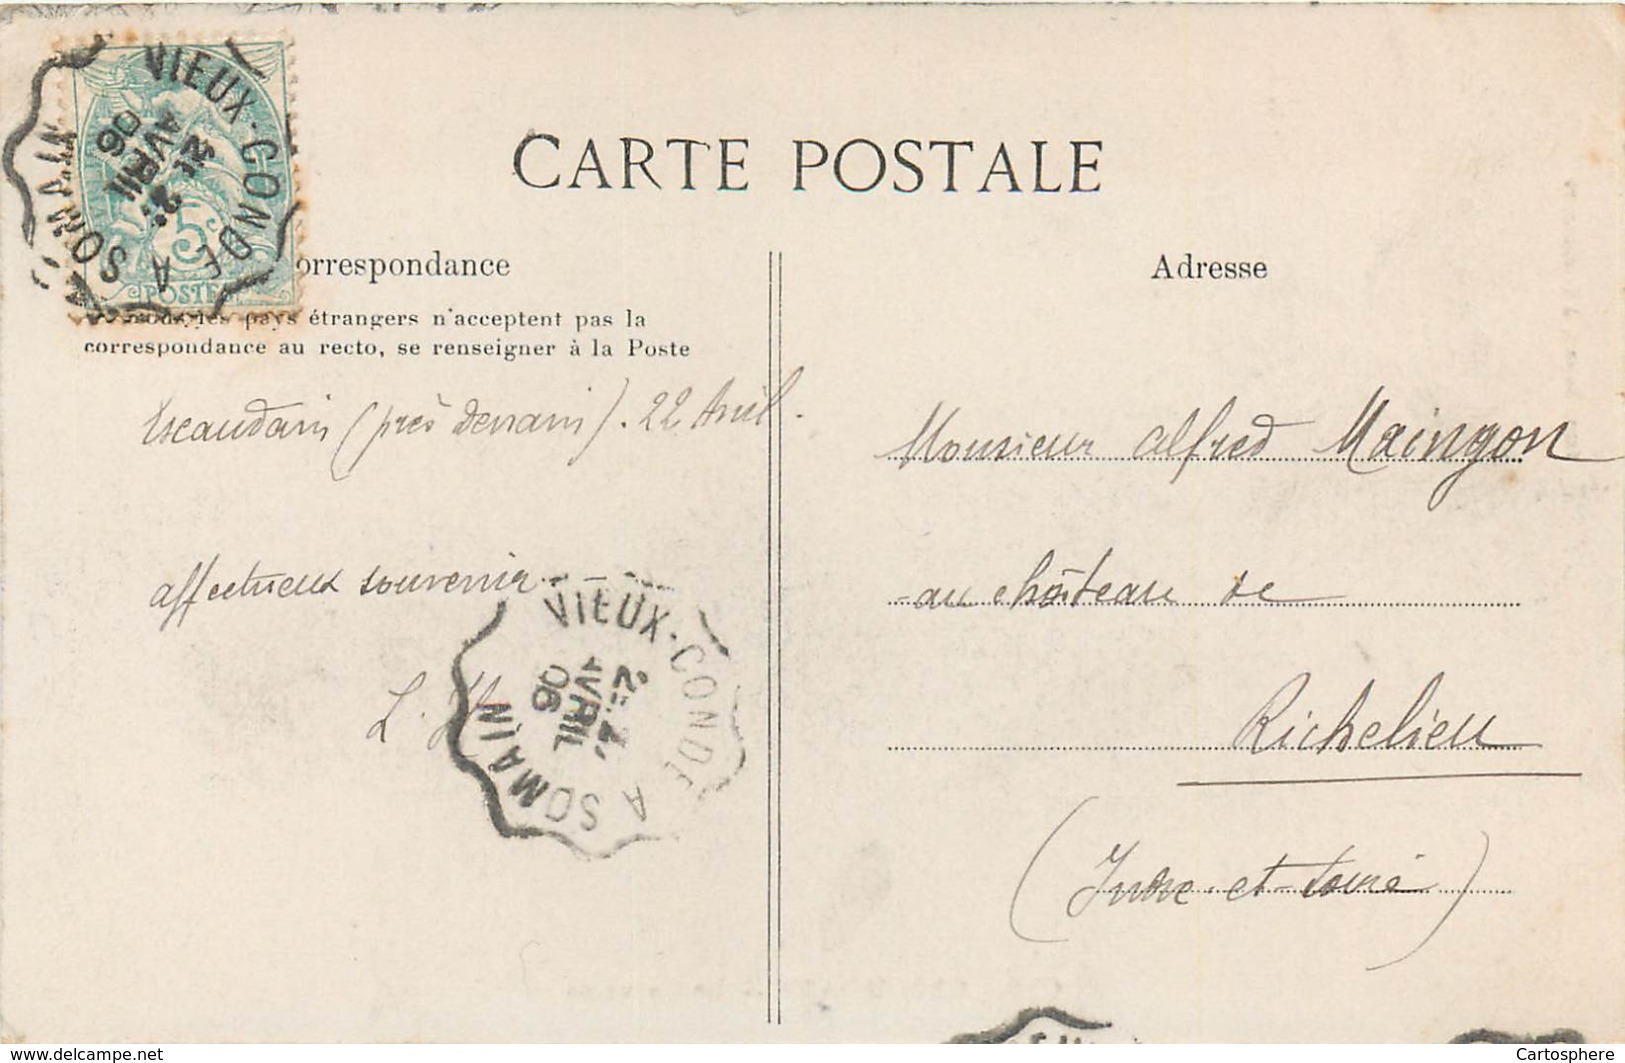 CARTE POSTALE
VIEUX-CONDE A SOMAIN
AVRIL
06
5c
POSTES
orrespondance
pays étrangers n'acceptent pas la
correspondance au recto, se renseigner à la Poste
Adresse
Escaudain (près Denain). 22 Avril.
affectueux souvenir
L.
VIEUX-CONDE A SOMAIN
AVRIL
06
Monsieur Alfred Maingon
au château de
Richelieu
(Indre-et-Loire)
www.delcampe.net
Cartosphere